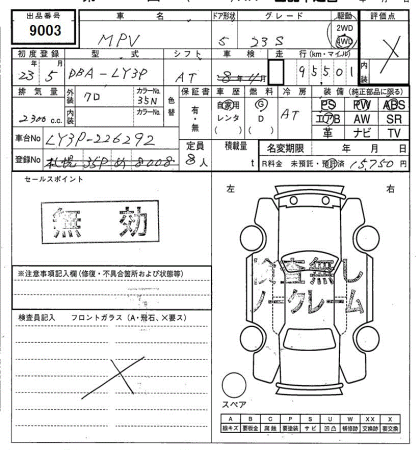 出品番号 車名 ドア形状 グレード 駆動 評価点
9003 MPV 5 23S 2WD 4WD
初度登録 型式 シフト 車検 走行(km・マイル) 内装
23 5 DBA-LY3P AT 8年4月 95501
排気量 外装 7D カラーNo. 35N 色替 保証書 車歴 燃料 冷房 装備(純正部品に限る)
2300 c.c. 内装 カラーNo. 有・無 自家用 レンタ G D AT PS PW ABS
エアB AW SR
革 ナビ TV
車台No LY3P-226292 定員 8人 積載量 t 名変期限 年 月 日
登録No 札幌 35P め 8008 R料金 未預託・預託済 15,750円
セールスポイント
無効
左 右
検査無し
ノークレーム
※注意事項記入欄(修復・不具合箇所および状態等)
検査員記入 フロントガラス(A・飛石、×要ス)
スペア
A B C P S U W X XX ×
線キズ 要板金 腐蝕 要塗装 サビ 凹凸 補修跡 交換跡 要交換